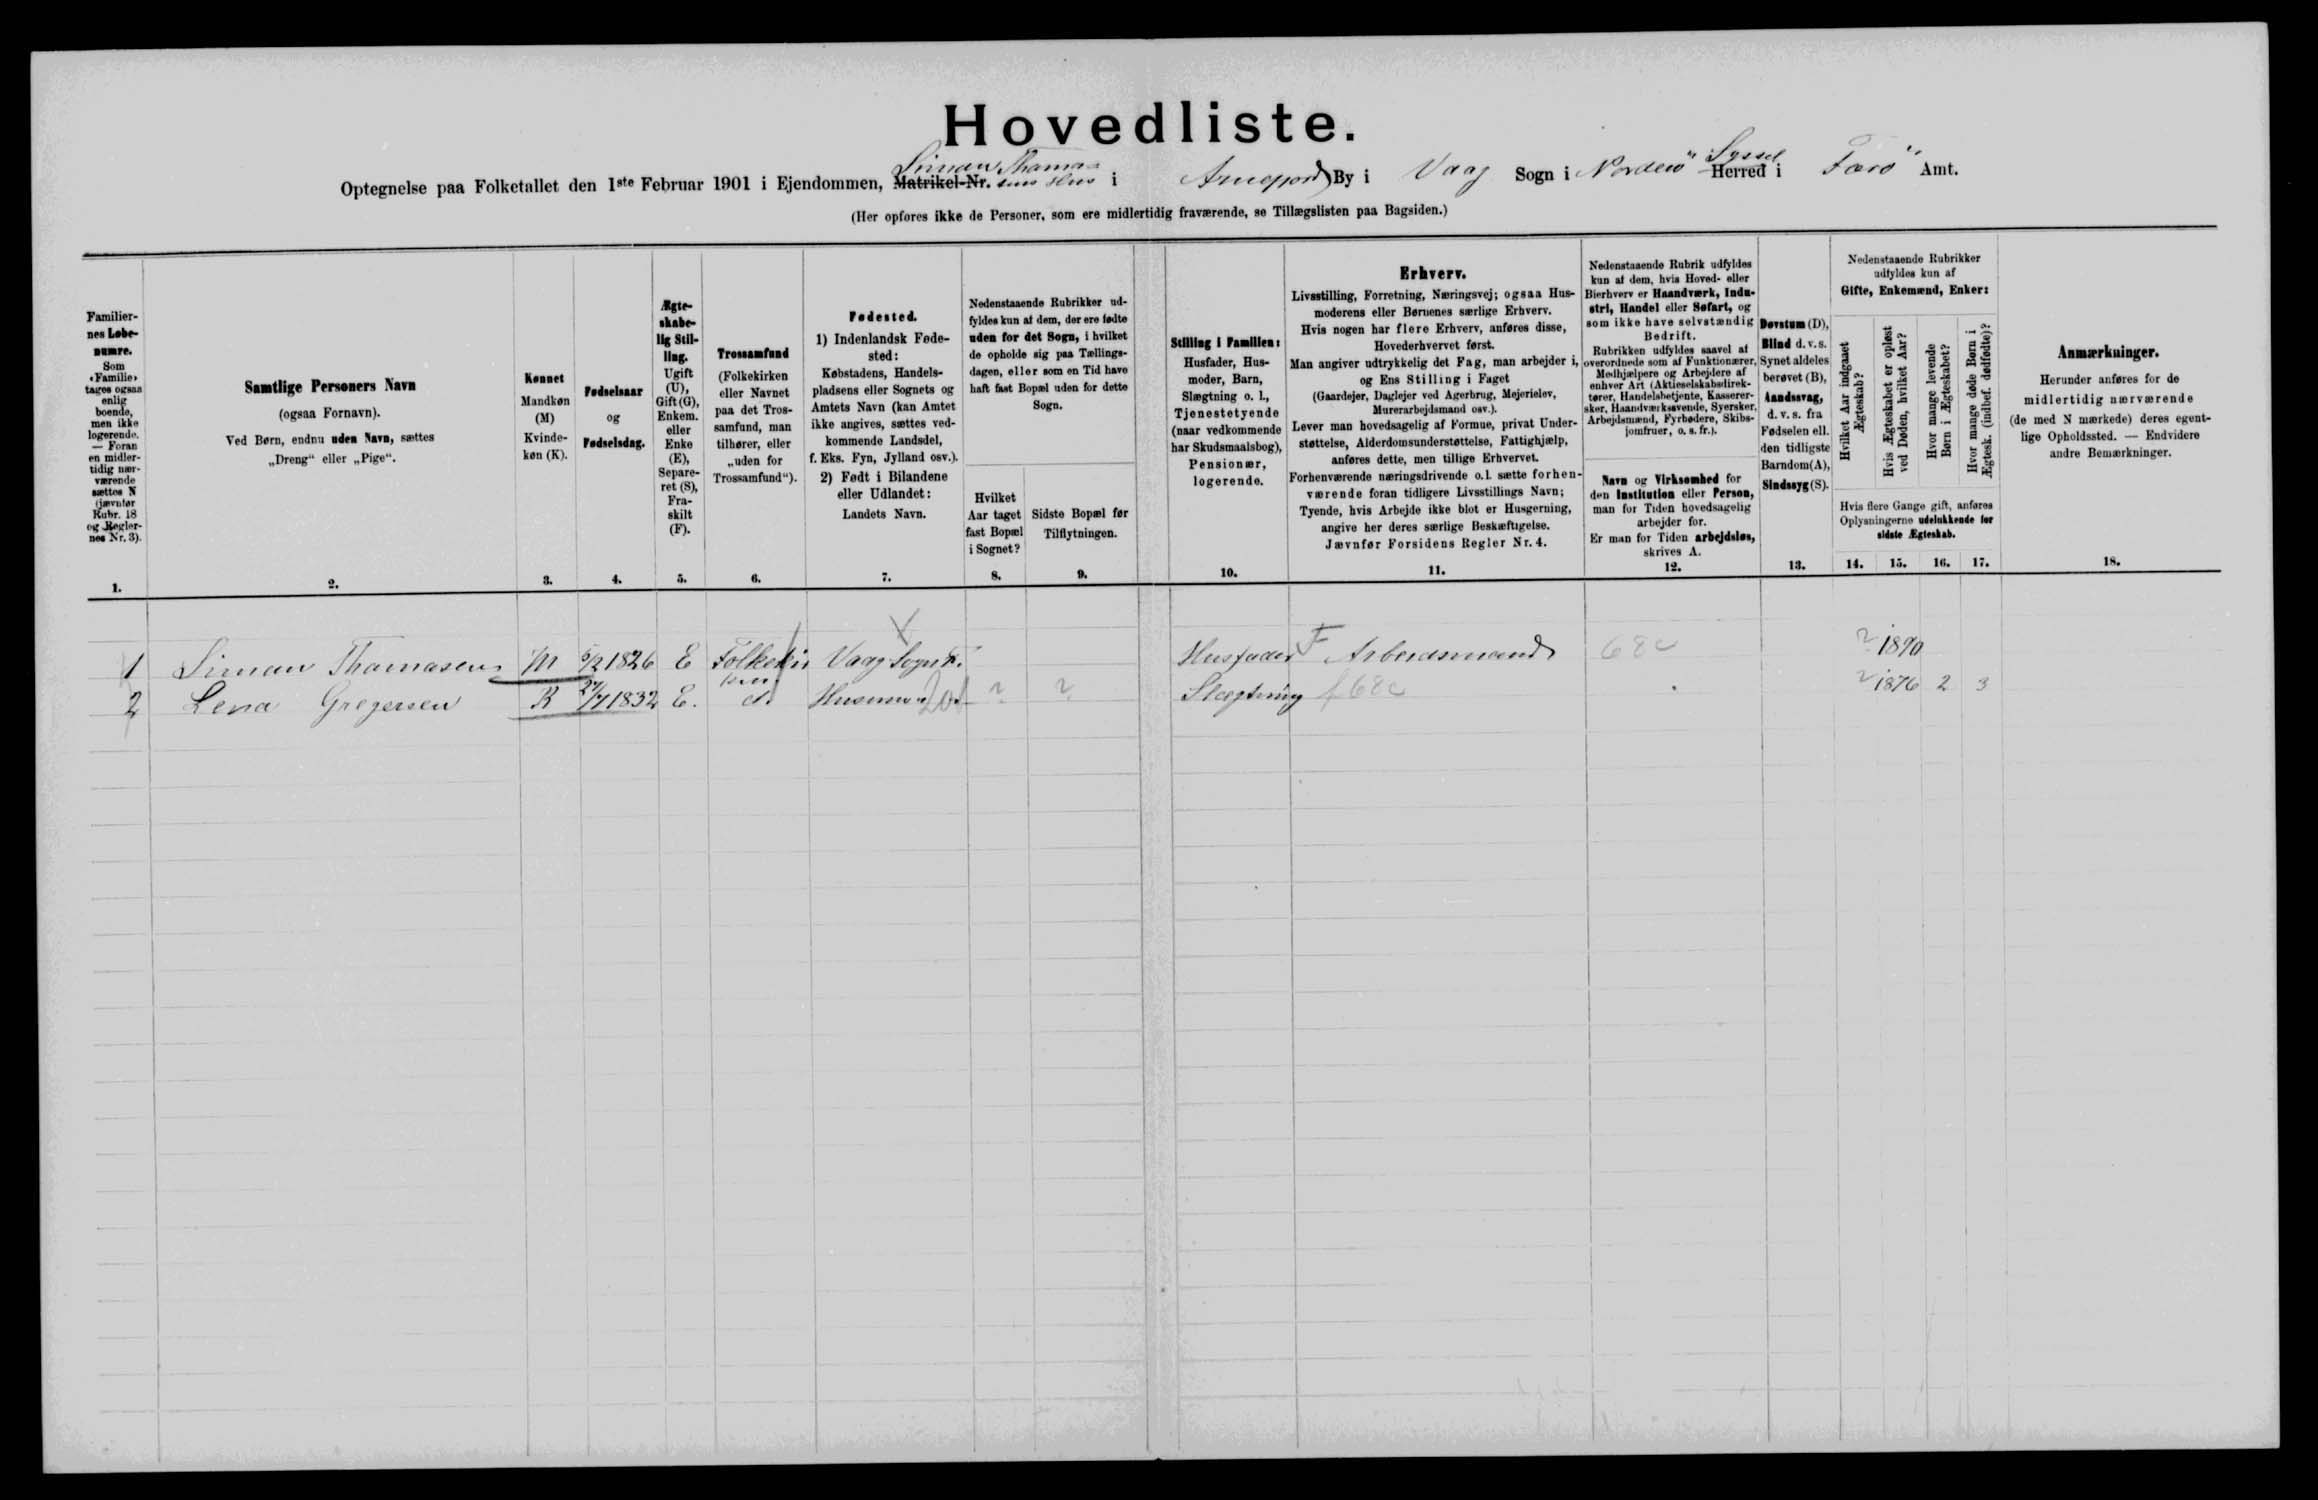 Hovedliste.
Optegnelse paa Folketallet den 1ste Februar 1901 i Ejendommen, Matrikel-Nr. Siman Thama= sens Hus i Arnefjord By i Vaag Sogn i Norderö Herred Syssel i Færö Amt.
(Her opføres ikke de Personer, som ere midlertidig fraværende, se Tillægslisten paa Bagsiden.)
Familier-
nes Løbe-
numre.
Som
«Familie»
tages ogsaa
enlig
boende,
men ikke
logerende.
— Foran
en midler-
tidig nær-
værende
sættes N
(jævnfør
Rubr. 18
og Regler-
nes Nr. 3).
1.
Samtlige Personers Navn
(ogsaa Fornavn).
Ved Børn, endnu uden Navn, sættes
„Dreng“ eller „Pige“.
2.
Kønnet
Mandkøn
(M)
Kvinde-
køn (K).
3.
Fødselsaar
og
Fødselsdag.
4.
Ægte-
skabe-
lig Stil-
ling.
Ugift
(U),
Gift (G),
Enkem.
eller
Enke
(E),
Separe-
ret (S),
Fra-
skilt
(F).
5.
Trossamfund
(Folkekirken
eller Navnet
paa det Tros-
samfund, man
tilhører, eller
„uden for
Trossamfund“).
6.
Fødested.
1) Indenlandsk Føde-
sted:
Købstadens, Handels-
pladsens eller Sognets og
Amtets Navn (kan Amtet
ikke angives, sættes ved-
kommende Landsdel,
f. Eks. Fyn, Jylland osv.).
2) Født i Bilandene
eller Udlandet:
Landets Navn.
7.
Nedenstaaende Rubrikker ud-
fyldes kun af dem, der ere fødte
uden for det Sogn, i hvilket
de opholde sig paa Tællings-
dagen, eller som en Tid have
haft fast Bopæl uden for dette
Sogn.
Hvilket
Aar taget
fast Bopæl
i Sognet?
8.
Sidste Bopæl før
Tilflytningen.
9.
Stilling i Familien:
Husfader, Hus-
moder, Barn,
Slægtning o. l.,
Tjenestetyende
(naar vedkommende
har Skudsmaalsbog),
Pensionær,
logerende.
10.
Erhverv.
Livsstilling, Forretning, Næringsvej; ogsaa Hus-
moderens eller Børnenes særlige Erhverv.
Hvis nogen har flere Erhverv, anføres disse,
Hovederhvervet først.
Man angiver udtrykkelig det Fag, man arbejder i,
og Ens Stilling i Faget
(Gaardejer, Daglejer ved Agerbrug, Mejerielev,
Murerarbejdsmand osv.).
Lever man hovedsagelig af Formue, privat Under-
støttelse, Alderdomsunderstøttelse, Fattighjælp,
anføres dette, men tillige Erhvervet.
Forhenværende næringsdrivende o. l. sætte forhen-
værende foran tidligere Livsstillings Navn;
Tyende, hvis Arbejde ikke blot er Husgerning,
angive her deres særlige Beskæftigelse.
Jævnfør Forsidens Regler Nr. 4.
11.
Nedenstaaende Rubrik udfyldes
kun af dem, hvis Hoved- eller
Bierhverv er Haandværk, Indu-
stri, Handel eller Søfart, og
som ikke have selvstændig
Bedrift.
Rubrikken udfyldes saavel af
overordnede som af Funktionærer,
Medhjælpere og Arbejdere af
enhver Art (Aktieselskabsdirek-
tører, Handelsbetjente, Kasserer-
sker, Haandværkssvende, Syersker,
Arbejdsmænd, Fyrbødere, Skibs-
jomfruer, o. s. fr.).
Navn og Virksomhed for
den Institution eller Person,
man for Tiden hovedsagelig
arbejder for.
Er man for Tiden arbejdsløs,
skrives A.
12.
Døvstum (D),
Blind d. v. s.
Synet aldeles
berøvet (B),
Aandssvag,
d. v. s. fra
Fødselen ell.
den tidligste
Barndom (A),
Sindssyg (S).
13.
Nedenstaaende Rubrikker
udfyldes kun af
Gifte, Enkemænd, Enker:
Hvilket Aar indgaaet
Ægteskab?
Hvis Ægteskabet er opløst
ved Døden, hvilket Aar?
Hvor mange levende
Børn i Ægteskabet?
Hvor mange døde Børn i
Ægtesk. (indbef. dødfødte)?
Hvis flere Gange gift, anføres
Oplysningerne udelukkende for
sidste Ægteskab.
14. 15. 16. 17.
Anmærkninger.
Herunder anføres for de
midlertidig nærværende
(de med N mærkede) deres egent-
lige Opholdssted. — Endvidere
andre Bemærkninger.
18.
1 Siman Thamasen M 5/2 1826 E Folkekir Vaag Sogn F. Husfader F Arbeidsmand 68c ? 1890
ken
2 Lena Gregersen K 27/7 1832 E. do ? ? Slægtning f 68c ? 1876 2 3